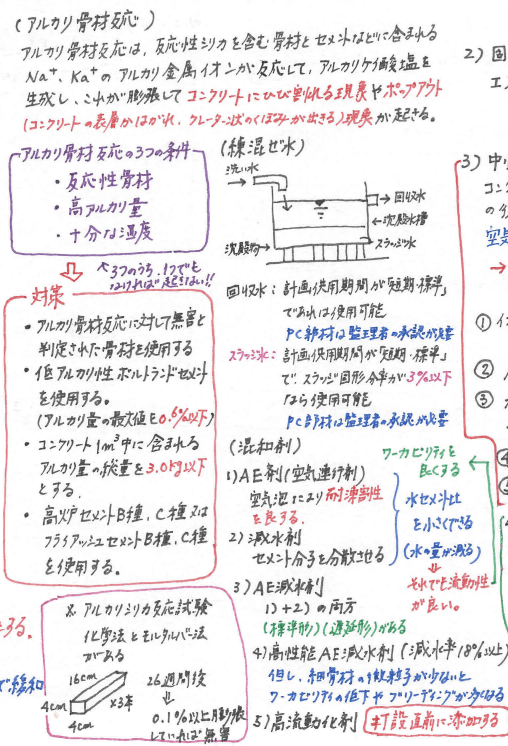 (アルカリ骨材反応)
アルカリ骨材反応は、反応性シリカを含む骨材とセメントなどに含まれる
Na⁺、Ka⁺のアルカリ金属イオンが反応して、アルカリケイ酸塩を
生成し、これが膨張してコンクリートにひび割れる現象やポップアウト
(コンクリートの表層がはがれ、クレーター状のくぼみが出きる)現象が起きる。
アルカリ骨材反応の3つの条件
・反応性骨材
・高アルカリ量
・十分な湿度
↑3つのうち、1つでも
なければ起きない!!
対策
・アルカリ骨材反応に対して無害と
判定された骨材を使用する
・低アルカリ性ポルトランドセメント
を使用する。
(アルカリ量の最大値を0.6%以下)
・コンクリート1m³中に含まれる
アルカリ量の総量を3.0kg以下
とする。
・高炉セメントB種、C種又は
フライアッシュセメントB種、C種
を使用する。
※アルカリシリカ反応試験
化学法とモルタルバー法
がある
16cm
4cm
4cm
×3本
26週間後
↓
0.1%以上膨張
していれば無害
(練混ぜ水)
洗い水
→回収水
←沈殿水槽
沈殿物
スラッジ水
回収水:計画供用期間が「短期・標準」
であれは使用可能
PC部材は監理者の承認が必要
スラッジ水:計画供用期間が「短期・標準」
で、スラッジ固形分率が3%以下
なら使用可能
PC部材は監理者の承認が必要
(混和剤)
1)AE剤(空気連行剤)
空気泡により耐凍害性
を良する。
2)減水剤
セメント分子を分散させる
3)AE減水剤
1)+2)の両方
(標準形)(遅延形)がある
ワーカビリティを
良くする
水セメント比
を小さくできる
(水の量が減る)
それでも流動性
が良い。
4)高性能AE減水剤(減水率18%以上)
但し、細骨材の微粒子が少ないと
ワーカビリティの低下やブリーディングが多くなる
5)高流動化剤 打設直前に添加する
2)固
エン
3)中
コン
の
空気
→
①イ
②
③
④
⑤
する。
で緩和